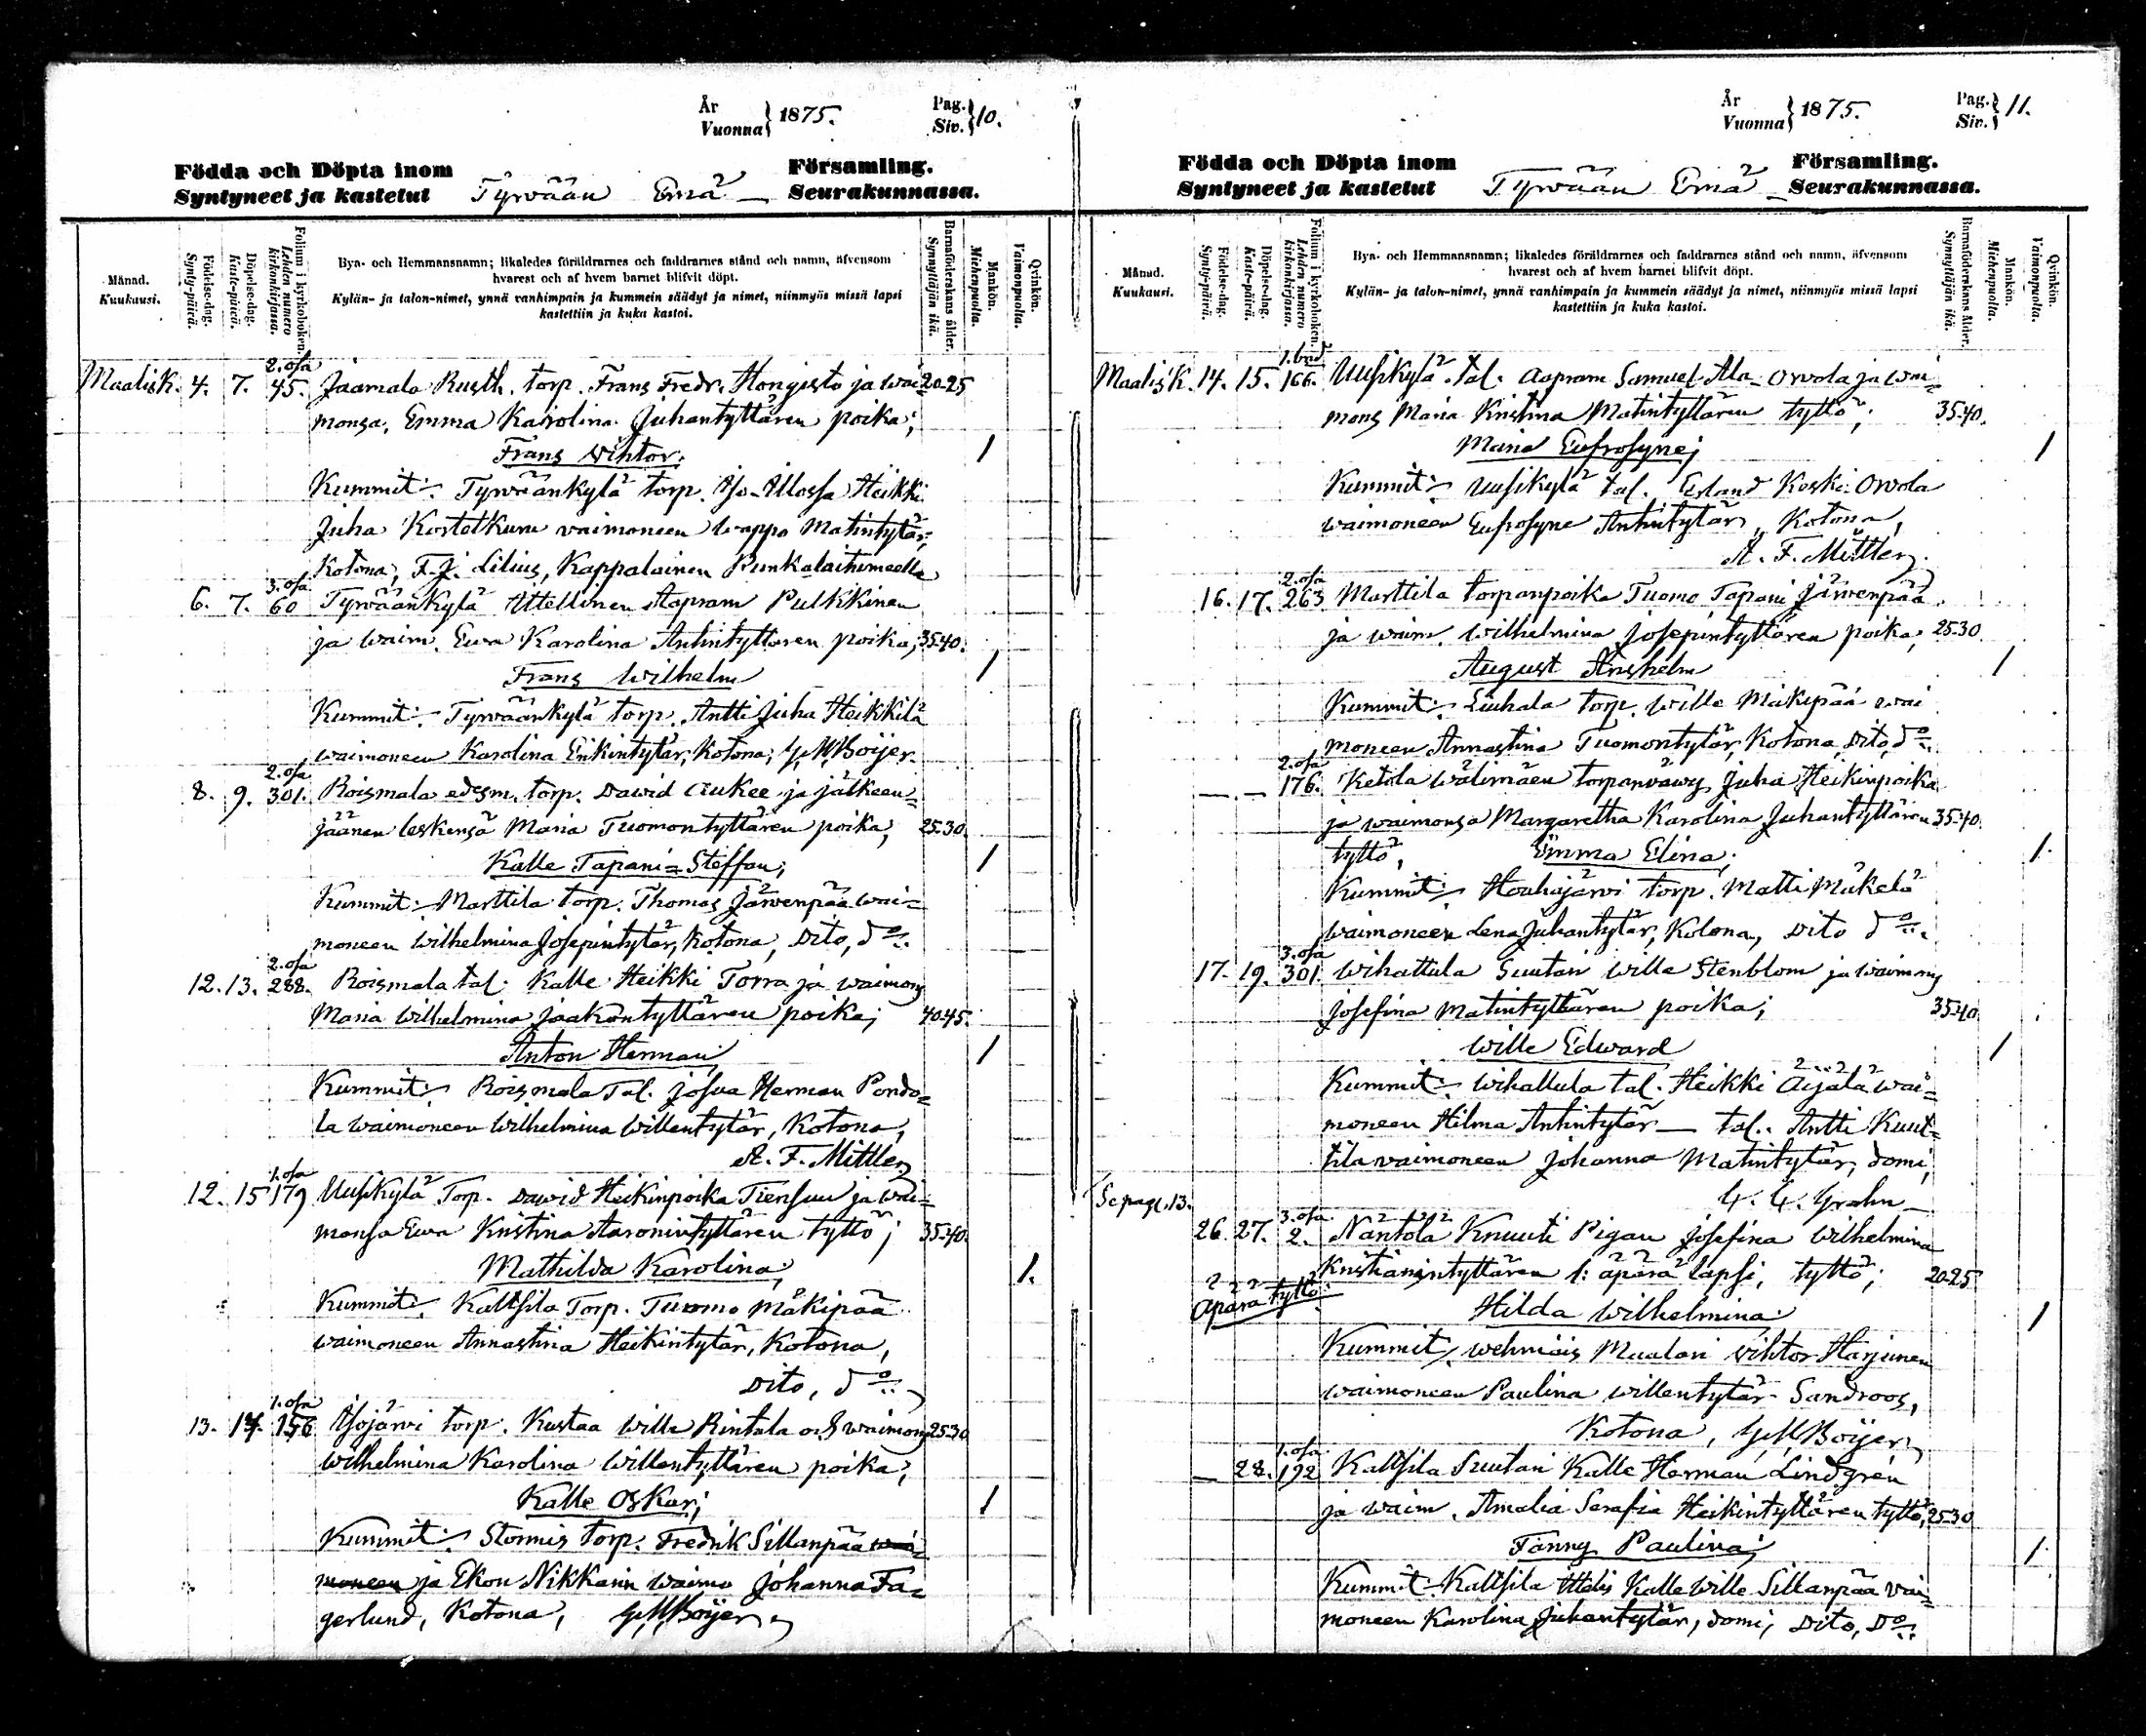 År
Vuonna } 1875.
Pag.
Siv. } 10.
Födda och Döpta inom Församling.
Syntyneet ja kastetut Tyrvään Emä — Seurakunnassa.
Månad.
Kuukausi.
Födelse-dag.
Synty-päivä.
Döpelse-dag.
Kaste-päivä.
Folium i kyrkoboken.
Lehden numero kirkonkirjassa.
Bya- och Hemmansnamn; likaledes föräldrarnes och faddrarnes stånd och namn, äfvensom
hvarest och af hvem barnet blifvit döpt.
Kylän- ja talon-nimet, ynnä vanhimpain ja kummein säädyt ja nimet, niinmyös missä lapsi
kastettiin ja kuka kastoi.
Barnaföderskans ålder.
Synnyttäjän ikä.
Mankön.
Miehenpuolia.
Qvinkön.
Vaimonpuolia.
2. osa
Maalisk. 4. 7. 45. Jaamala Rusth. torp. Frans Fredr. Hongisto ja wai= 20-25
monsa, Emma Karolina Juhantyttären poika;
Frans Wihtor; 1
Kummit: Tyrväänkylä torp. Heikki
Juha waimoneen Wappo Matintytär,
Kotona, F. J. Lilius, Kappalainen Punkalaitumella
3. osa
6. 7. 60 Tyrväänkylä Ittellinen Aapram Pulkkinen
ja waim. Ewa Karolina Antintyttären poika, 35-40.
Frans Wilhelm 1
Kummit: Tyrväänkylä torp. Antti Juha Heikkilä
waimoneen Karolina Erkintytär, Kotona, Boijer.
2. osa
8. 9. 301. Roismala edesm. torp. Dawid Aukee ja jälkeen=
jäänen leskensä Maria Tuomontyttären poika, 25-30.
Kalle Tapani=Steffan; 1
Kummit: Marttila torp. Thomas Järwenpää wai=
moneen Wilhelmina Josepintytär, Kotona, Dito, do.
2. osa
12. 13. 288. Roismala tal. Kalle Heikki Torra ja waimons
Maria Wilhelmina Jaakontyttären poika; 40-45.
Anton Herman; 1
Kummit: Roismala Tal. Josua Herman Pondo=
la waimoneen Wilhelmina Willentytär, Kotona,
A. F. Mittler,
1. osa
12. 15 179 Uusikylä Torp. Dawid Heikinpoika Tiensuu ja wai=
monsa Ewa Kristina Aaronintyttären tyttö; 35-40.
Mathilda Karolina, 1.
Kummit: Kallsila Torp. Tuomo Mäkipää
waimoneen Annastina Heikintytär, Kotona,
Dito, do.
1. osa
13. 14. 156 Ylojärvi torp. Kustaa Wille Rintala och waimons 25-30
Wilhelmina Karolina Willentyttären poika;
Kalle Oskar; 1
Kummit: Stormis torp. Fredrik Sillanpää wai=
moneen ja Ekon Nikkarin waimo Johanna Fa=
gerlund, Kotona, Boijer.
År
Vuonna } 1875.
Pag.
Siv. } 11.
Födda och Döpta inom Församling.
Syntyneet ja kastetut Tyrvään Emä — Seurakunnassa.
Månad.
Kuukausi.
Födelse-dag.
Synty-päivä.
Döpelse-dag.
Kaste-päivä.
Folium i kyrkoboken.
Lehden numero kirkonkirjassa.
Bya- och Hemmansnamn; likaledes föräldrarnes och faddrarnes stånd och namn, äfvensom
hvarest och af hvem barnet blifvit döpt.
Kylän- ja talon-nimet, ynnä vanhimpain ja kummein säädyt ja nimet, niinmyös missä lapsi
kastettiin ja kuka kastoi.
Barnaföderskans ålder.
Synnyttäjän ikä.
Mankön.
Miehenpuolia.
Qvinkön.
Vaimonpuolia.
Maalisk. 14. 15. 166. Uusikylä tal. Aapram Samuel Ala-Orvola ja wai=
mons Maria Kristina Matintyttären tyttö; 35-40.
Maria Eufrosyne; 1
Kummit: Uusikylä tal. Erland Koski-Orvola
waimoneen Eufrosyne Antintytär, Kotona,
A. F. Mittler,
2. osa
16. 17. 263 Marttila torpanpoika Tuomo Tapani Järwenpää
ja waim. Wilhelmina Josepintyttären poika, 25-30.
August Anshelm 1
Kummit: Liuhala torp. Wille Mäkipää wai
moneen Annastina Tuomontytär, Kotona, Dito, do.
2. osa
— — 176. Ketola Wälimäen torpanväwy Juha Heikinpoika
ja waimonsa Margaretha Karolina Juhantyttären 35-40.
tyttö, Emma Elina; 1.
Kummit: Houhajärvi torp. Matti Mäkelä
waimoneen Lena Juhantytär, Kotona, Dito do.
3. osa
17. 19. 301. Wihattula Suutari Wille Stenblom ja waimons
Josefina Matintyttären poika; 35-40
Wille Edward 1
Kummit: Wihattula tal. Heikki Äijälä wai=
moneen Hilma Antintytär — tal. Antti Kuut=
tila waimoneen Johanna Matintytär, domi,
Grahn
Se pag. 13.
3. osa
26. 27. 2. Näntölä Knuuti Pigan Josefina Wilhelmina
Kristianintyttären 1: äpärä lapsi, tyttö; 20-25
äpärä tyttö
Hilda Wilhelmina 1
Kummit: Maalari Wihtor Harjunen
waimoneen Paulina Willentytär Sandroos,
Kotona, Boijer,
1. osa
— 28. 192 Kallsila Suutari Kalle Herman Lindgrén
ja waim. Amalia Serafia Heikintyttären tyttö, 25-30
Fanny Paulina; 1.
Kummit: Kallsila Ittelis Kalle Wille Sillanpää wai=
moneen Karolina Juhantytär, domi, Dito, Do.